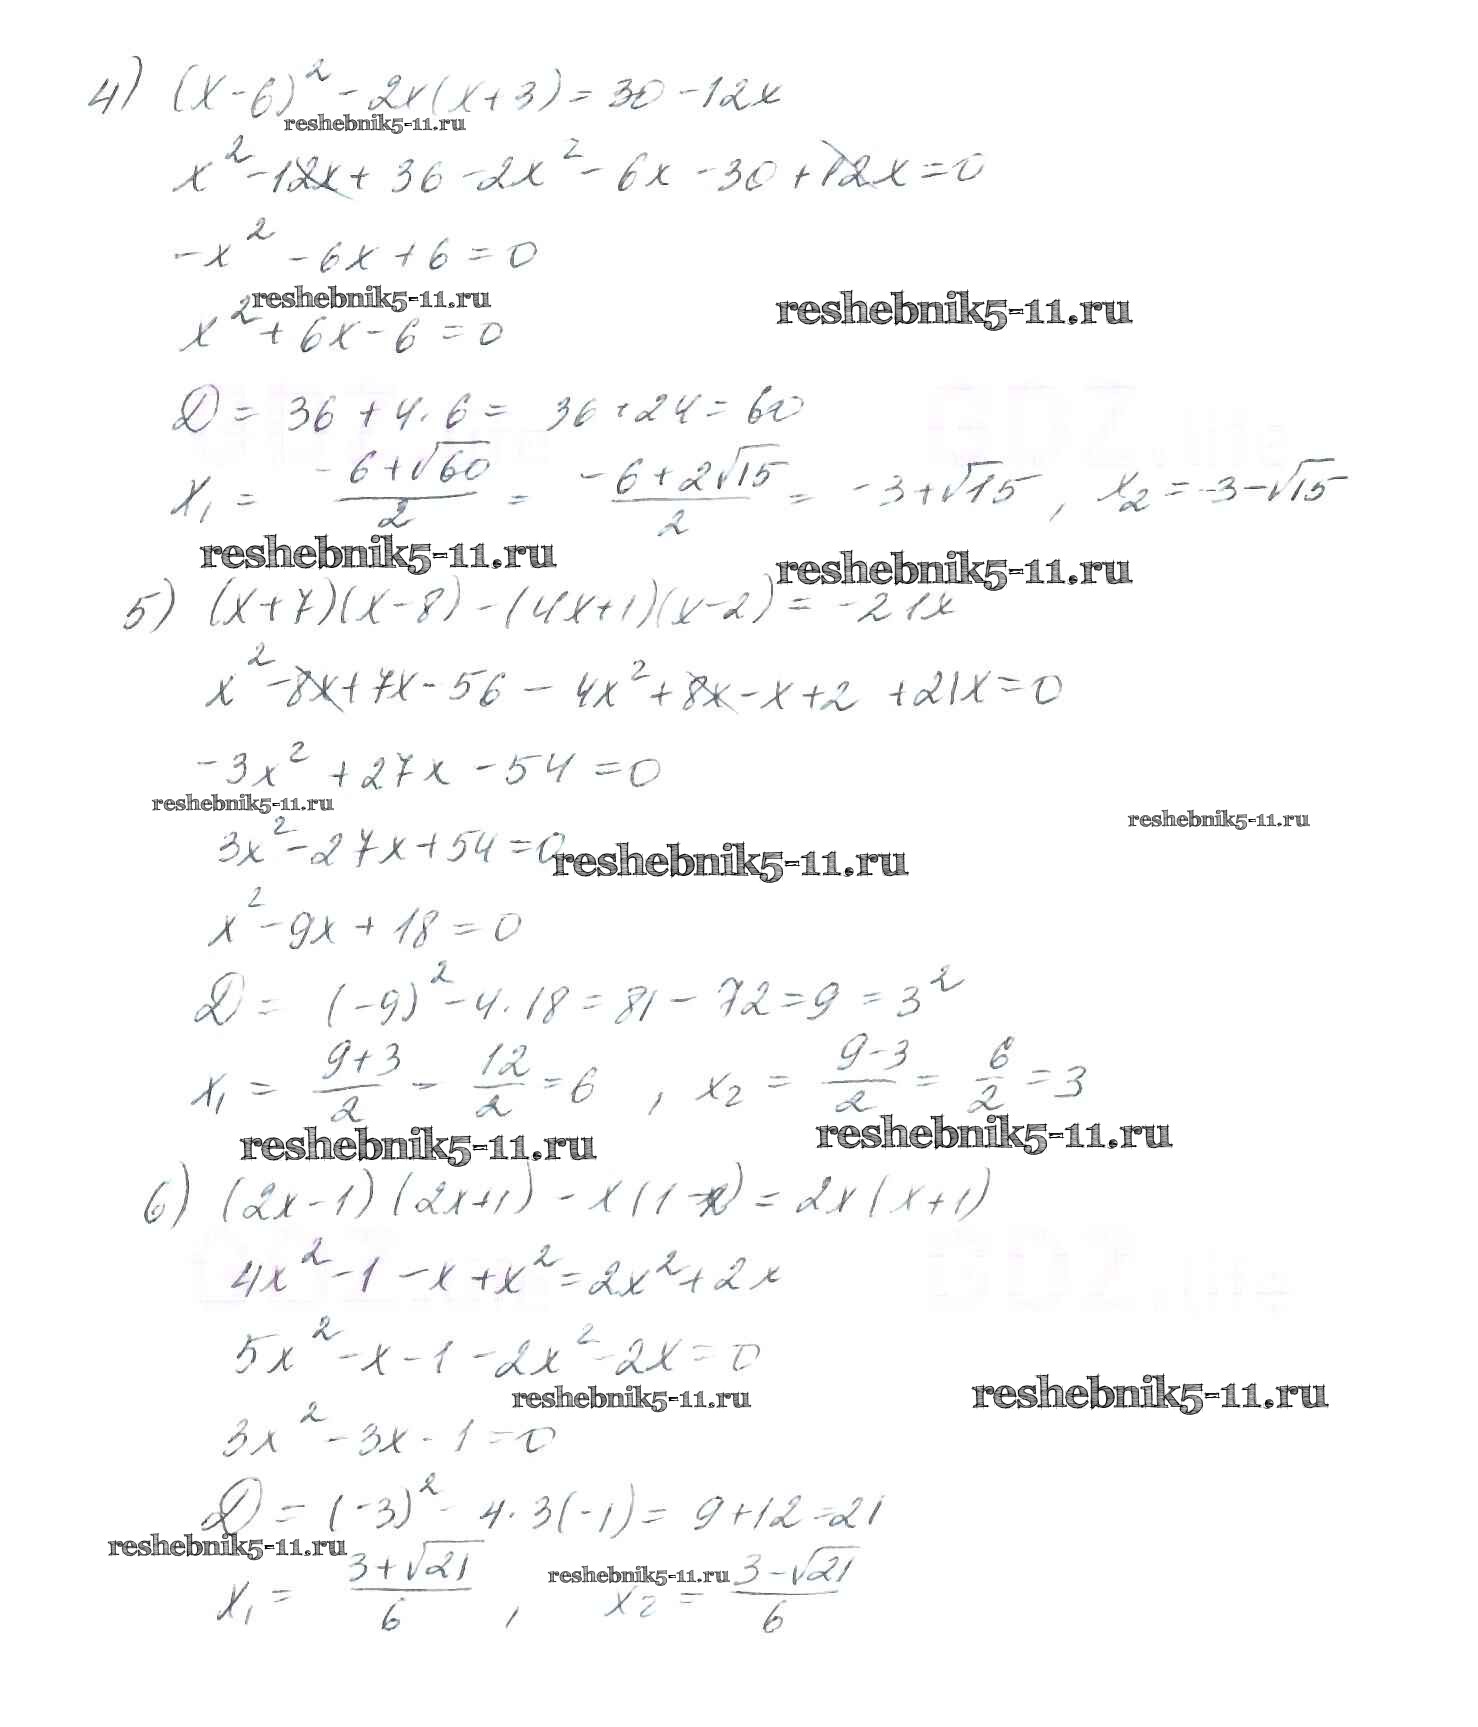 4) (x-6)² - 2x(x+3) = 30 - 12x
reshebnik5-11.ru
x² - 12x + 36 - 2x² - 6x - 30 + 12x = 0
-x² - 6x + 6 = 0
reshebnik5-11.ru reshebnik5-11.ru
x² + 6x - 6 = 0
D = 36 + 4·6 = 36 + 24 = 60
GDZ.life GDZ.life
x₁ = (-6+√60)/2 = (-6+2√15)/2 = -3+√15, x₂ = -3-√15
reshebnik5-11.ru reshebnik5-11.ru
5) (x+7)(x-8) - (4x+1)(x-2) = -21x
x² - 8x + 7x - 56 - 4x² + 8x - x + 2 + 21x = 0
-3x² + 27x - 54 = 0
reshebnik5-11.ru reshebnik5-11.ru
3x² - 27x + 54 = 0
reshebnik5-11.ru
x² - 9x + 18 = 0
D = (-9)² - 4·18 = 81 - 72 = 9 = 3²
x₁ = (9+3)/2 = 12/2 = 6, x₂ = (9-3)/2 = 6/2 = 3
reshebnik5-11.ru reshebnik5-11.ru
6) (2x-1)(2x+1) - x(1-x) = 2x(x+1)
4x² - 1 - x + x² = 2x² + 2x
GDZ.life GDZ.life
5x² - x - 1 - 2x² - 2x = 0
reshebnik5-11.ru reshebnik5-11.ru
3x² - 3x - 1 = 0
D = (-3)² - 4·3(-1) = 9 + 12 = 21
reshebnik5-11.ru reshebnik5-11.ru
x₁ = (3+√21)/6, x₂ = (3-√21)/6